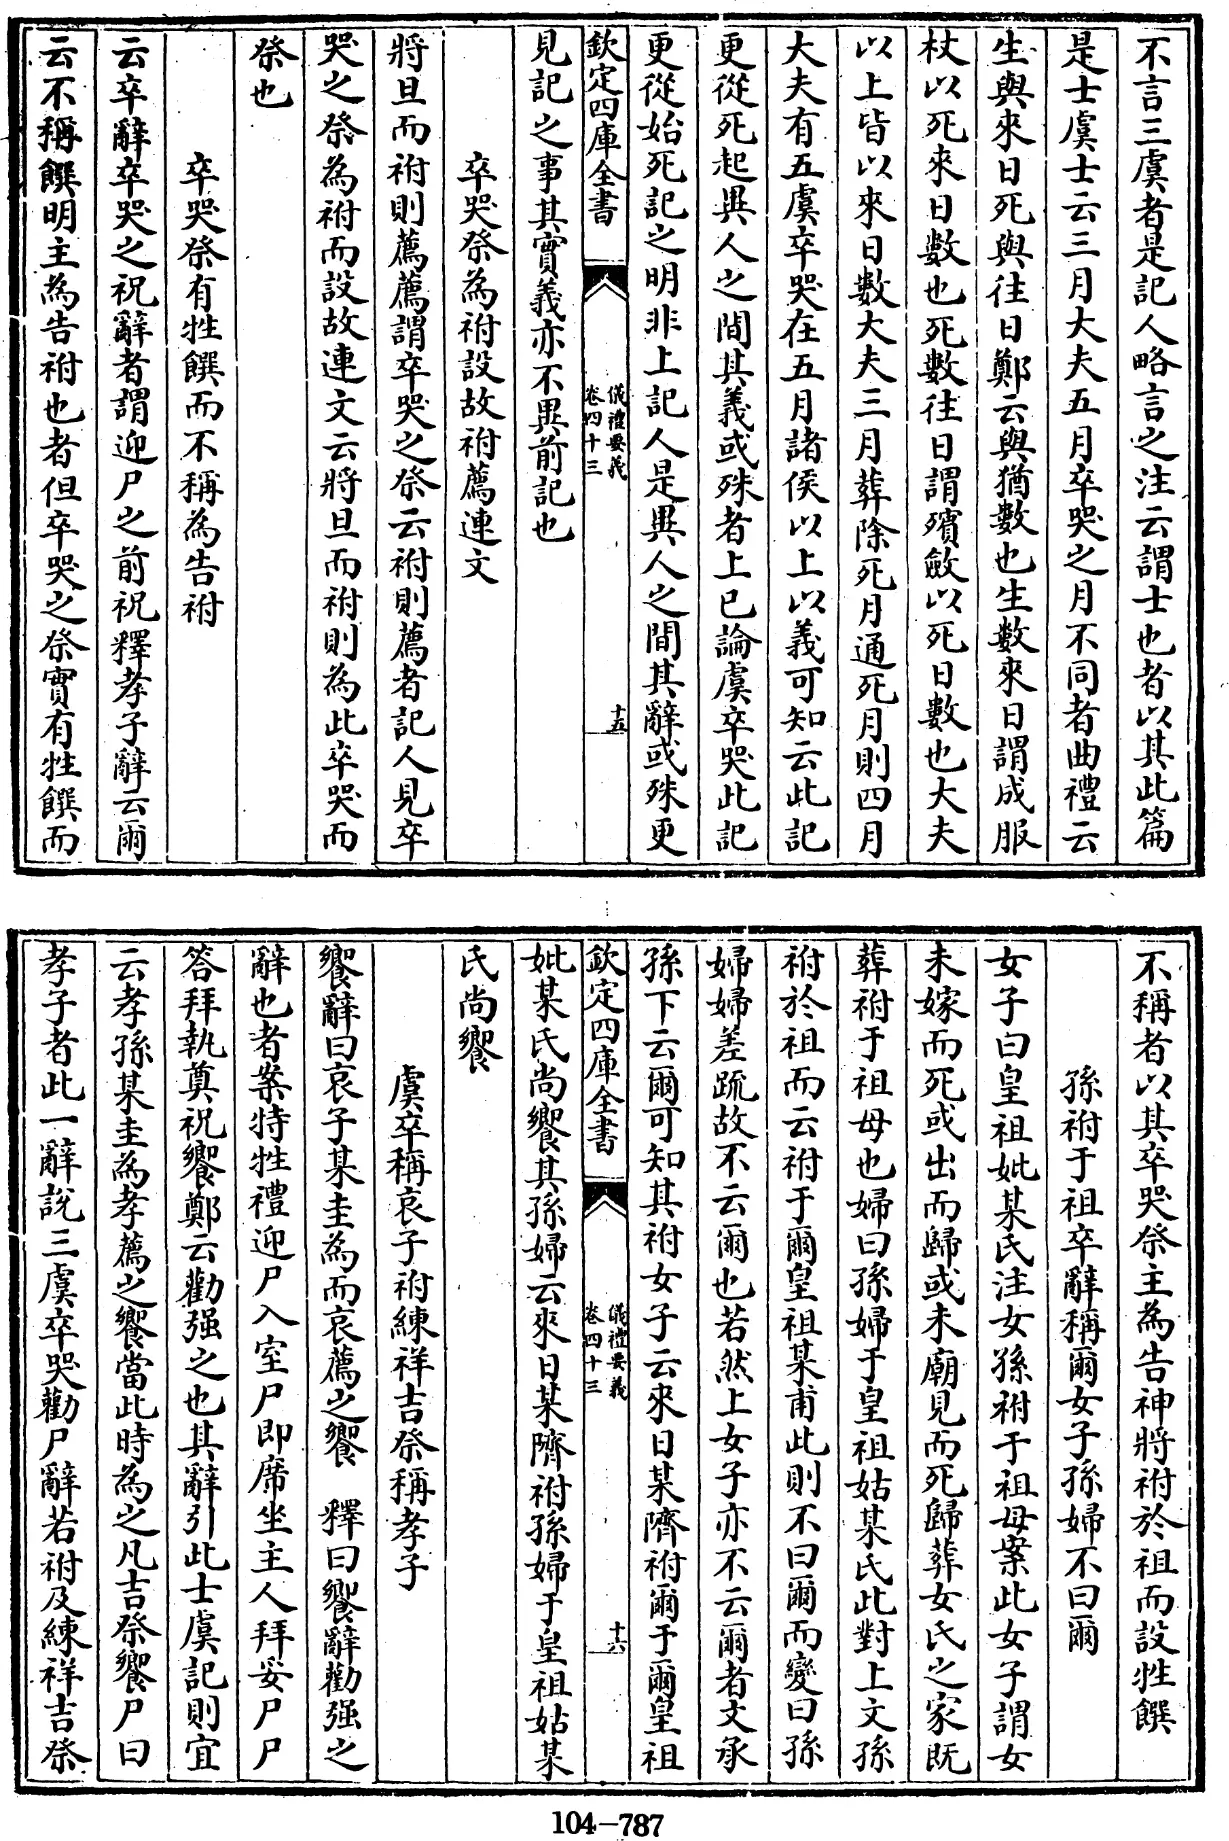 不言三虞者是記人略言之注云謂士也者以其此篇
是士虞士云三月大夫五月卒哭之月不同者曲禮云
生與來日死與往日鄭云與猶數也生數來日謂成服
杖以死來日數也死數往日謂殯斂以死日數也大夫
以上皆以來日數大夫三月葬除死月通死月則四月
大夫有五虞卒哭在五月諸侯以上以義可知云此記
更從死起異人之間其義或殊者上已論虞卒哭此記
更從始死記之明非上記人是異人之間其辭或殊更
欽定四庫全書
儀禮要義
卷四十三
十五
見記之事其實義亦不異前記也
卒哭祭為祔設故祔薦連文
將旦而祔則薦薦謂卒哭之祭云祔則薦者記人見卒
哭之祭為祔而設故連文云將旦而祔則為此卒哭而
祭也
卒哭祭有牲饌而不稱為告祔
云卒辭卒哭之祝辭者謂迎尸之前祝釋孝子辭云爾
云不稱饌明主為告祔也者但卒哭之祭實有牲饌而
不稱者以其卒哭祭主為告神將祔於祖而設牲饌
孫祔于祖卒辭稱爾女子孫婦不曰爾
女子曰皇祖妣某氏注女孫祔于祖母案此女子謂女
未嫁而死或出而歸或未廟見而死歸葬女氏之家既
葬祔于祖母也婦曰孫婦于皇祖姑某氏此對上文孫
祔於祖而云祔于爾皇祖某甫此則不曰爾而變曰孫
婦婦差疏故不云爾也若然上女子亦不云爾者文承
孫下云爾可知其祔女子云來日某隮祔爾于爾皇祖
欽定四庫全書
儀禮要義
卷四十三
十六
妣某氏尚饗其孫婦云來日某隮祔孫婦于皇祖姑某
氏尚饗
虞卒稱哀子祔練祥吉祭稱孝子
饗辭曰哀子某圭為而哀薦之饗 釋曰饗辭勸强之
辭也者案特牲禮迎尸入室尸即席坐主人拜妥尸尸
答拜執奠祝饗鄭云勸强之也其辭引此士虞記則宜
云孝孫某圭為孝薦之饗當此時為之凡吉祭饗尸曰
孝子者此一辭說三虞卒哭勸尸辭若祔及練祥吉祭
104-787